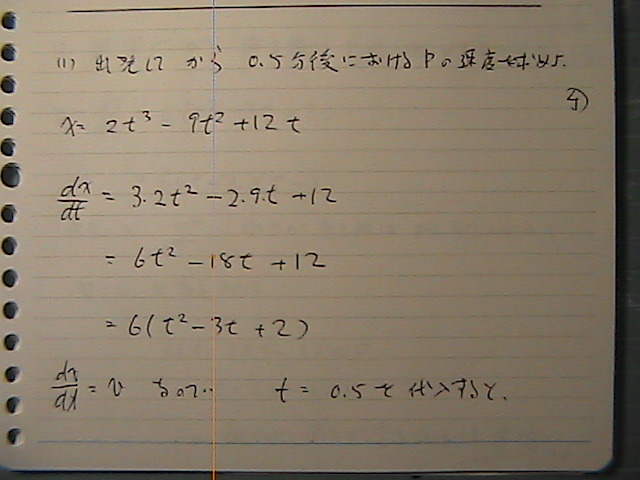 (1) 出発してから 0.5分後におけるPの速度を求めよ.
x = 2t³ - 9t² + 12t
dx/dt = 3.2t² - 2.9.t + 12
= 6t² - 18t + 12
= 6(t² - 3t + 2)
dx/dt = v なので t = 0.5を代入すると.